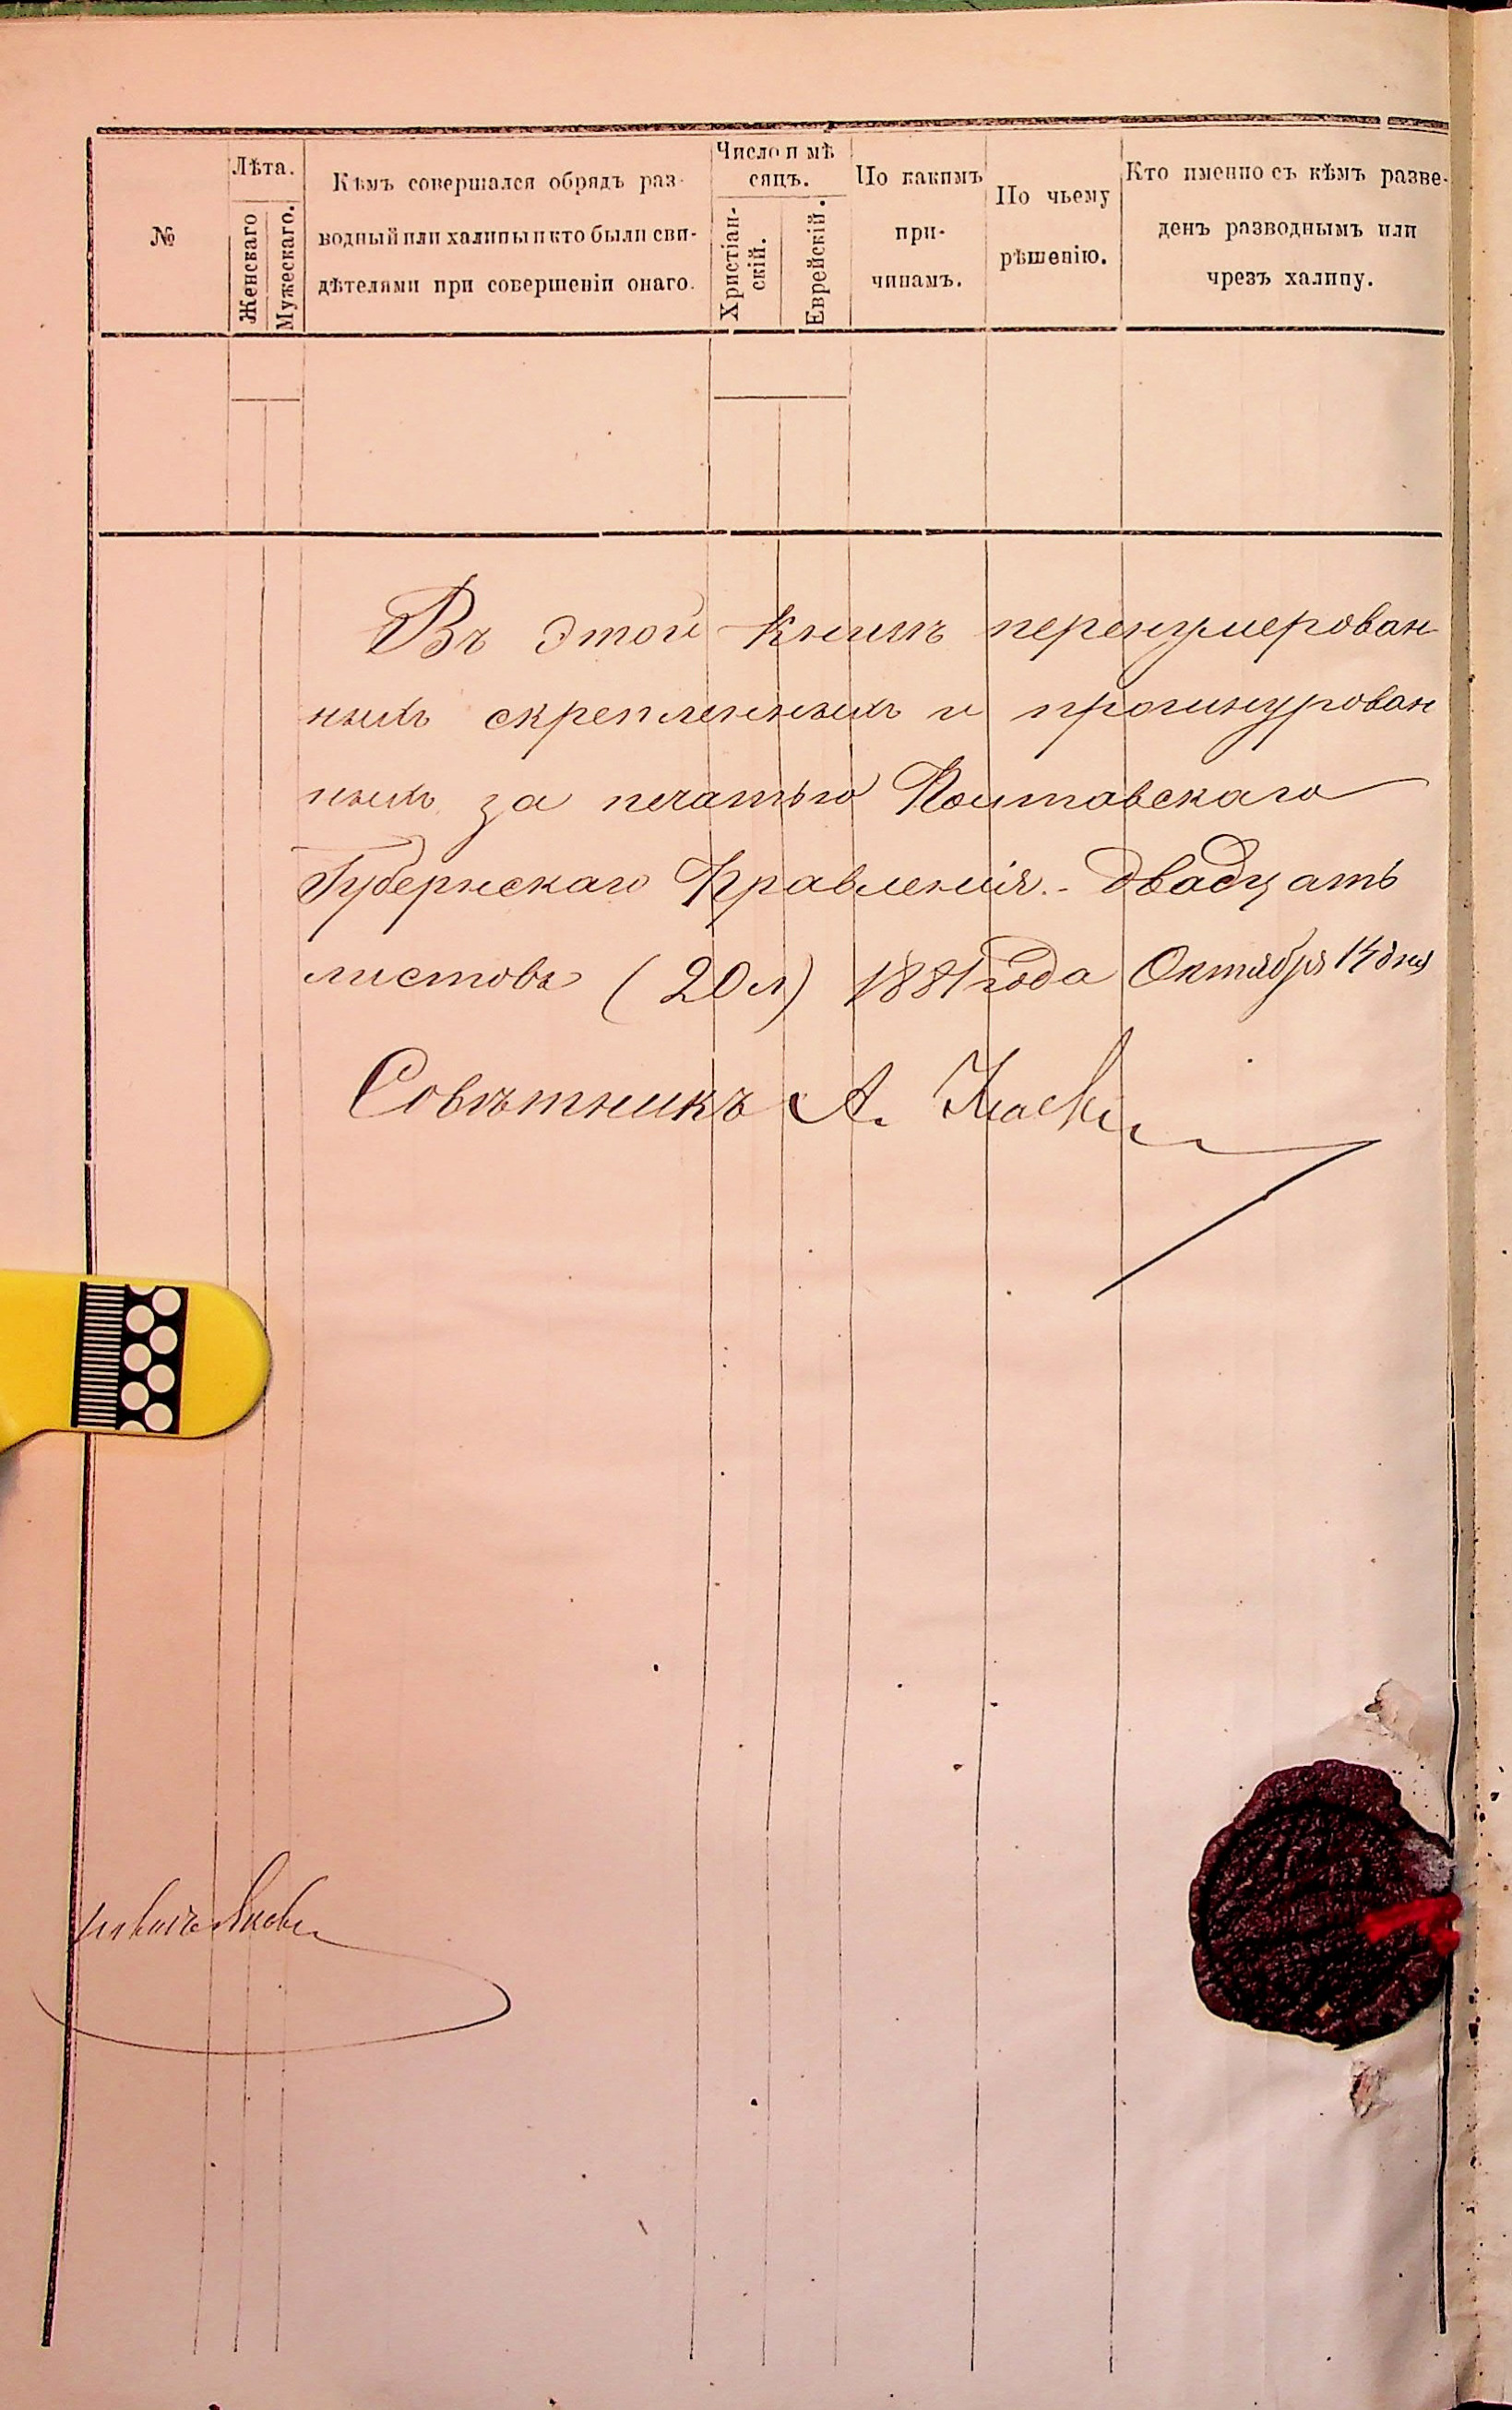 №
Лѣта.
Женскаго
Мужескаго.
Кѣмъ совершался обрядъ раз-
водный или халицы и кто были сви-
дѣтелями при совершеніи онаго.
Число и мѣ
сяцъ.
Христіан-
скій.
Еврейскій.
По какимъ
при-
чинамъ.
По чьему
рѣшенію.
Кто именно съ кѣмъ разве-
денъ разводнымъ или
чрезъ халицу.
Въ этой книгѣ перенумерован
ныхъ скрепленныхъ и прошнурован
ныхъ за печатью Полтавскаго
Губернскаго Правленія. - двадцать
листовъ (20 л) 1881 года Октября 14 дня
Совѣтникъ А.